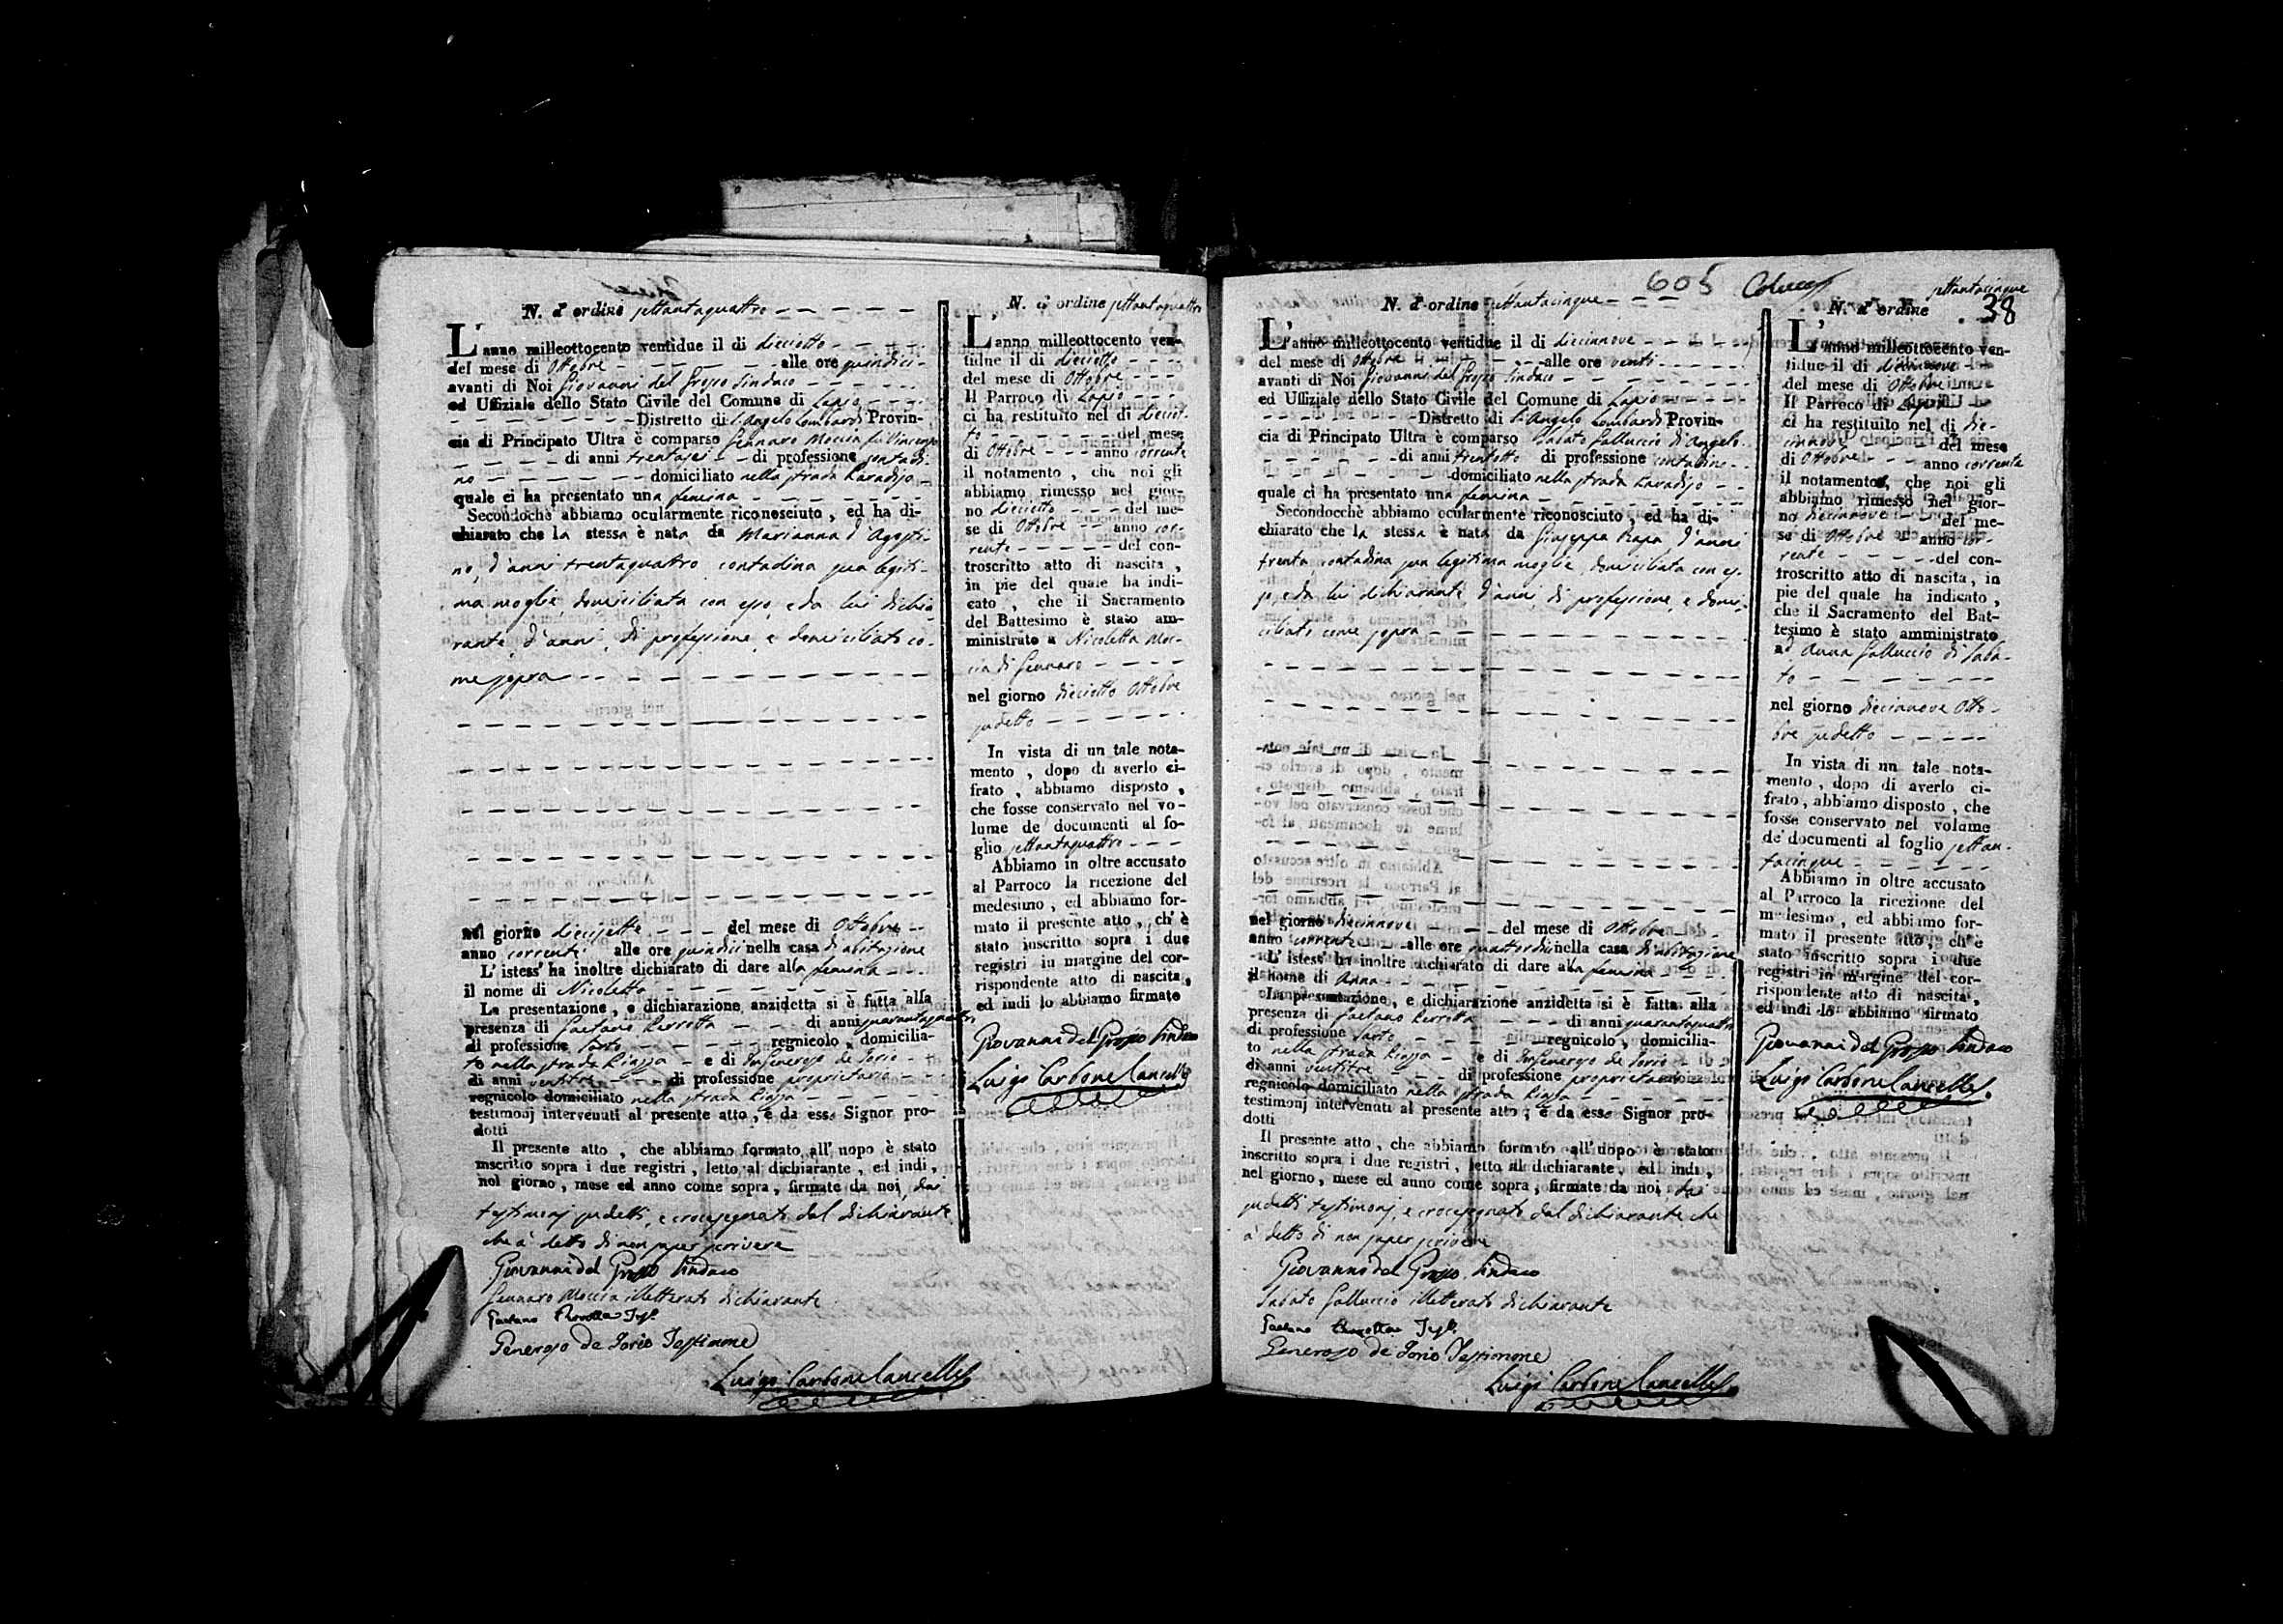 N. d' ordine settantaquattro
L' anno milleottocento ventidue il di dieciotto
del mese di Ottobre alle ore quindici
avanti di Noi Giovanni del Grosso Sindaco
ed Uffiziale dello Stato Civile del Comune di Lapio
Distretto di S. Angelo Lombardi Provin-
cia di Principato Ultra è comparso Gennaro Moccia fu Vincenzo
di anni trentasei di professione contadi-
no domiciliato nella strada Paradiso
quale ci ha presentato una femina
Secondochè abbiamo ocularmente riconosciuto, ed ha di-
chiarato che la stessa è nata da Marianna d'Agosti-
no, d'anni trentaquattro contadina sua legiti-
ma moglie, domiciliata con esso, e da lui dichia
rante, d'anni, di professione, e domiciliato co-
me sopra
nel giorno diecisette del mese di Ottobre
anno corrente alle ore quindici nella casa di abitazione
L' istess' ha inoltre dichiarato di dare alla femina
il nome di Nicoletta
La presentazione, e dichiarazione anzidetta si è fatta alla
presenza di Gaetano Perrotta di anni quarantaquattro
di professione Sarto regnicolo, domicilia-
to nella strada Piazza e di Generoso de Iorio
di anni ventitre di professione proprietario
regnicolo domiciliato nella strada Piazza
testimonj intervenuti al presente atto, e da esso Signor pro-
dotti
Il presente atto, che abbiamo formato all' uopo è stato
inscritto sopra i due registri, letto al dichiarante, ed indi,
nel giorno, mese ed anno come sopra, firmate da noi, dai
testimonj sudetti, e crocesegnato dal dichiarante
che à detto di non saper scrivere
Giovanni del Grosso Sindaco
Gennaro Moccia illetterato dichiarante
Gaetano Perrotta Tes.
Generoso de Iorio Testimone
Luigi Carbone Cancell.
N. d' ordine settantaquattro
L' anno milleottocento ven-
tidue il di dieciotto
del mese di Ottobre
Il Parroco di Lapio
ci ha restituito nel di dieciot-
to del mese
di Ottobre anno corrente
il notamento, che noi gli
abbiamo rimesso nel gior-
no dieciotto del me-
se di Ottobre anno cor-
rente del con-
troscritto atto di nascita,
in pie del quale ha indi-
cato, che il Sacramento
del Battesimo è stato am-
ministrato a Nicoletta Moc-
cia di Gennaro
nel giorno dieciotto Ottobre
sudetto
In vista di un tale nota-
mento, dopo di averlo ci-
frato, abbiamo disposto,
che fosse conservato nel vo-
lume de' documenti al fo-
glio settantaquattro
Abbiamo in oltre accusato
al Parroco la ricezione del
medesimo, ed abbiamo for-
mato il presente atto, ch' è
stato inscritto sopra i due
registri in margine del cor-
rispondente atto di nascita,
ed indi lo abbiamo firmato
Giovanni del Grosso Sindaco
Luigi Carbone Cancell.
605
38
N. d' ordine settantacinque
L' anno milleottocento ventidue il di diecinnove
del mese di Ottobre alle ore venti
avanti di Noi Giovanni del Grosso Sindaco
ed Uffiziale dello Stato Civile del Comune di Lapio
Distretto di S. Angelo Lombardi Provin-
cia di Principato Ultra è comparso Sabato Galluccio di Angelo
di anni trentotto di professione contadino
domiciliato nella strada Paradiso
quale ci ha presentato una femina
Secondocchè abbiamo ocularmente riconosciuto, ed ha di-
chiarato che la stessa è nata da Giuseppa Rapa d'anni
trenta contadina sua legitima moglie, domiciliata con es-
so, e da lui dichiarante d'anni, di professione, e domi-
ciliato come sopra
nel giorno diecinnove del mese di Ottobre
anno corrente alle ore quattordici nella casa di abitazione
L' istess' ha inoltre dichiarato di dare alla femina
il nome di Anna
La presentazione, e dichiarazione anzidetta si è fatta alla
presenza di Gaetano Perrotta di anni quarantaquattro
di professione Sarto regnicolo, domicilia-
to nella strada Piazza e di Generoso de Iorio
di anni ventitre di professione proprietario
regnicolo domiciliato nella strada Piazza
testimonj intervenuti al presente atto, e da esso Signor pro-
dotti
Il presente atto, che abbiamo formato all' uopo è stato
inscritto sopra i due registri, letto al dichiarante, ed indi,
nel giorno, mese ed anno come sopra, firmate da noi, da
sudetti testimonj, e crocesegnato dal dichiarante che
à detto di non saper scrivere
Giovanni del Grosso Sindaco
Sabato Galluccio illetterato dichiarante
Gaetano Perrotta Tes.
Generoso de Iorio Testimone
Luigi Carbone Cancell.
settantacinque
N. d' ordine
L' anno milleottocento ven-
tidue il di diecinnove
del mese di Ottobre
Il Parroco di Lapio
ci ha restituito nel di die-
cinnove del mese
di Ottobre anno corrente
il notamento, che noi gli
abbiamo rimesso nel gior-
no diecinnove del me-
se di Ottobre anno cor-
rente del con-
troscritto atto di nascita, in
pie del quale ha indicato,
che il Sacramento del Bat-
tesimo è stato amministrato
ad Anna Galluccio di Saba-
to
nel giorno diecinnove Otto-
bre sudetto
In vista di un tale nota-
mento, dopo di averlo ci-
frato, abbiamo disposto, che
fosse conservato nel volume
de' documenti al foglio settan-
tacinque
Abbiamo in oltre accusato
al Parroco la ricezione del
medesimo, ed abbiamo for-
mato il presente atto, ch' è
stato inscritto sopra i due
registri in margine del cor-
rispondente atto di nascita,
ed indi lo abbiamo firmato
Giovanni del Grosso Sindaco
Luigi Carbone Cancell.